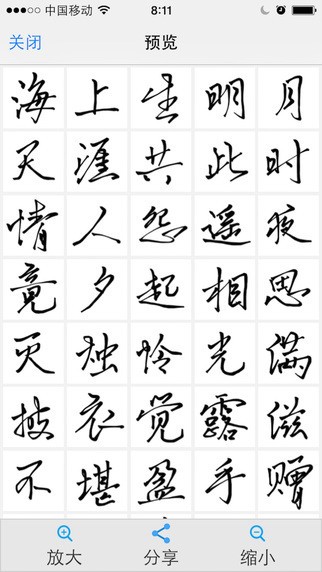 中国移动 8:11
关闭 预览
海上生明月
天涯共此时
情人怨遥夜
竟夕起相思
灭独怜光满
披衣觉露滋
不堪盈手赠
放大 分享 缩小